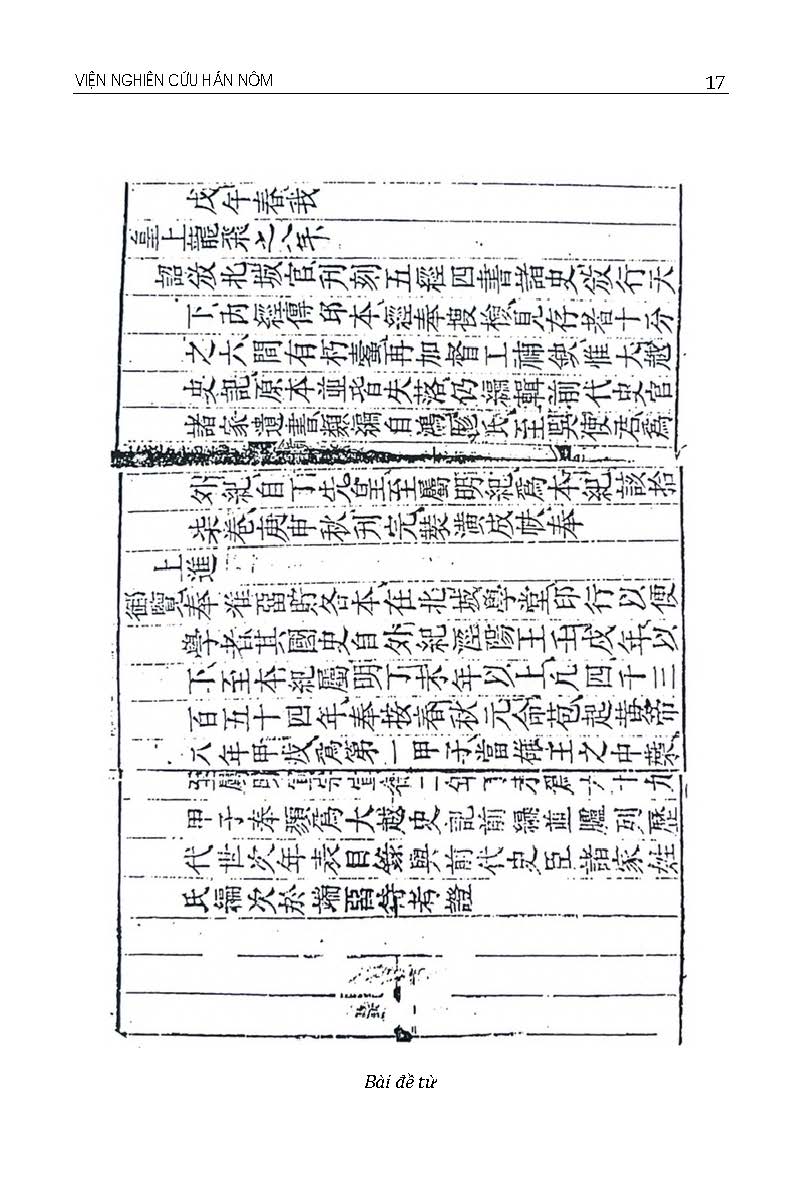 VIỆN NGHIÊN CỨU HÁN NÔM 17
戊年春我
皇上龍飛之八年
詔北城官刊刻五經四書諸史行天
下西經傳印本經奉搜檢見存者十分
之六間有朽蠹再加督工補缺惟大越
史記原本並皆失落仍編輯前代史官
諸家遺書類編自鴻厖氏至吳使君為
外紀自丁先皇至屬明紀為本紀該拾
柒卷庚申秋刊完裝潢成帙奉
上進
御覽奉准留貯各本在北城學堂印行以便
學者其國史自外紀涇陽王壬戌年以
下至本紀屬明丁未年以上凡四千三
百五十四年奉按春秋元命苞起黃帝
八年甲戌為第一甲子當雒王之中葉
至屬明宣宗宣德二年丁未為六十九
甲子奉為大越史記前編並臚列歷
代世次年表目錄與前代史臣諸家姓
氏編次於端留等考證
Bài đề từ